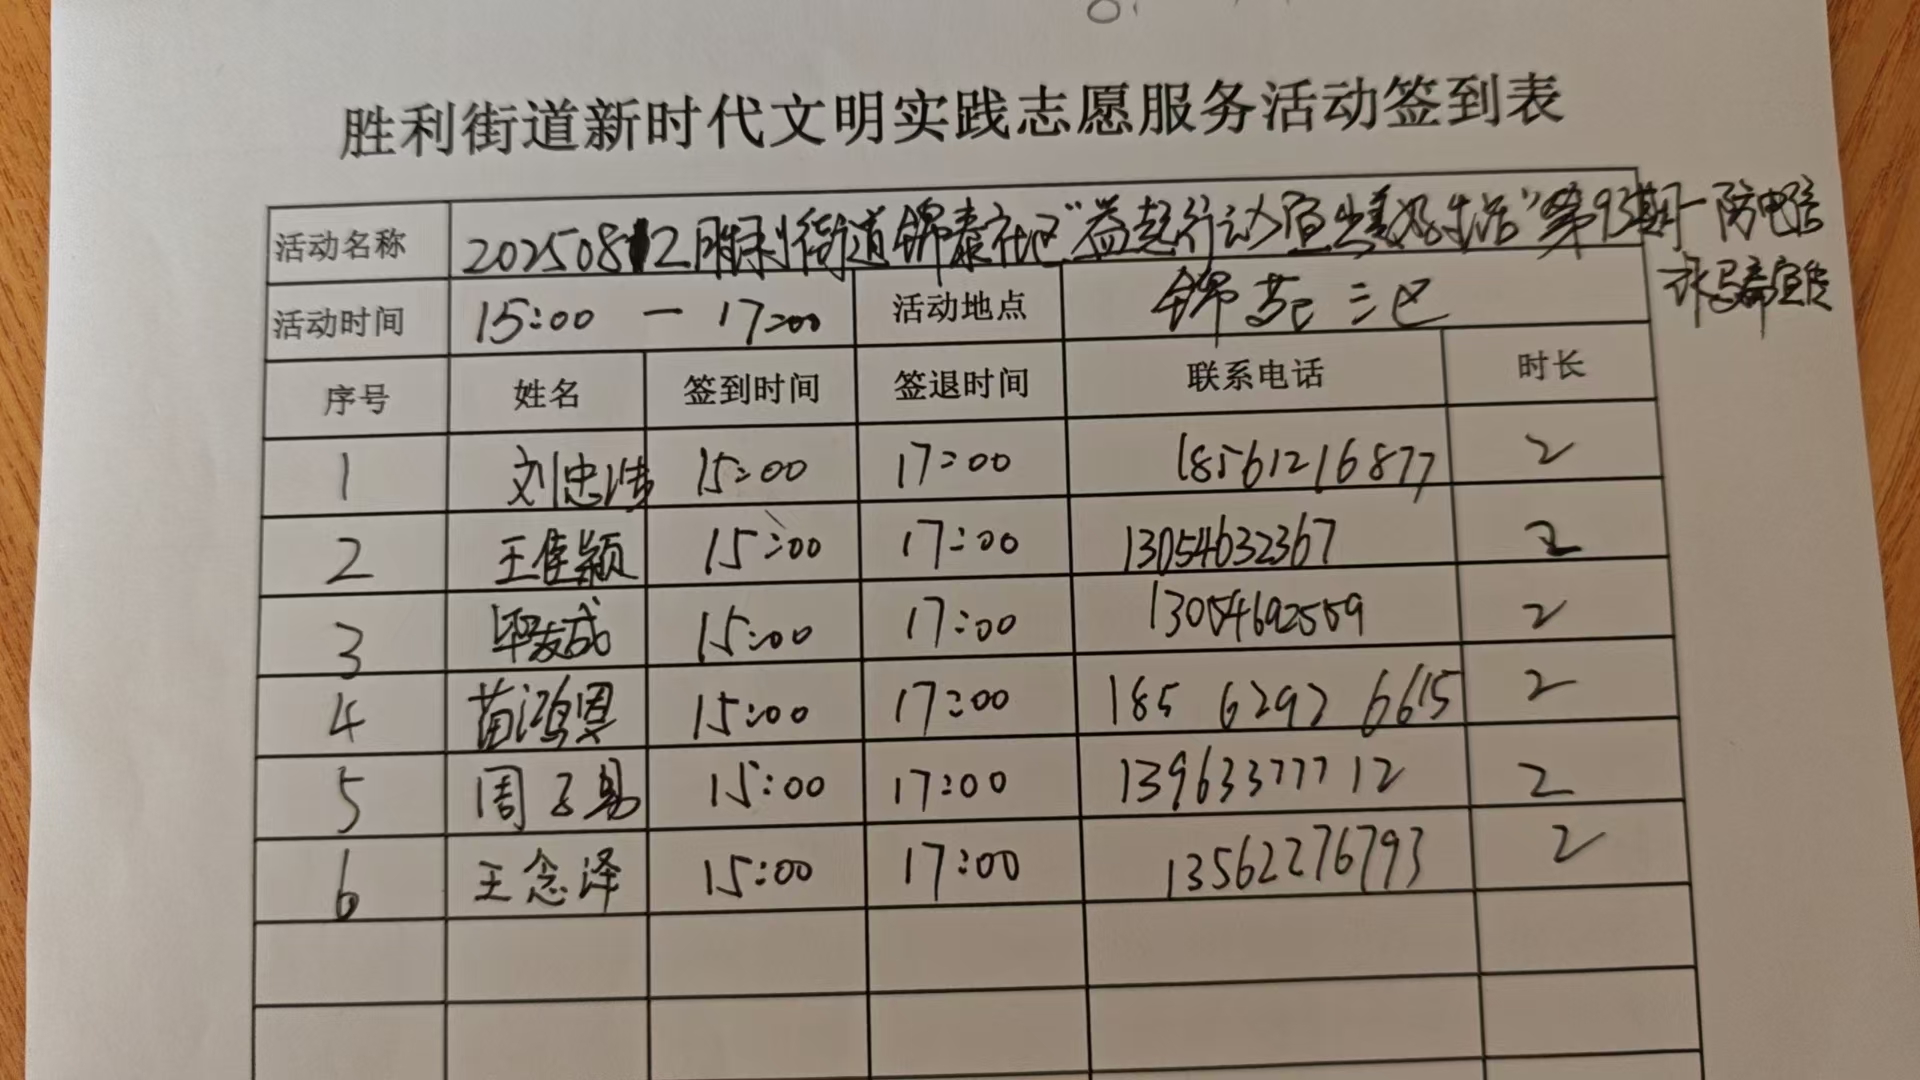 胜利街道新时代文明实践志愿服务活动签到表
活动名称 20250812胜利街道锦泰社区“益起行动 宜出美好生活”第93期—防电信
诈骗宣传
活动时间 15:00 — 17:00 活动地点 锦苑三区
序号 姓名 签到时间 签退时间 联系电话 时长
1 刘忠 15:00 17:00 18561216877 2
2 王佳颖 15:00 17:00 13054632367 2
3 成 15:00 17:00 13054692559 2
4 苗鸿恩 15:00 17:00 185 6292 6615 2
5 周子易 15:00 17:00 13963377712 2
6 王念泽 15:00 17:00 13562276793 2